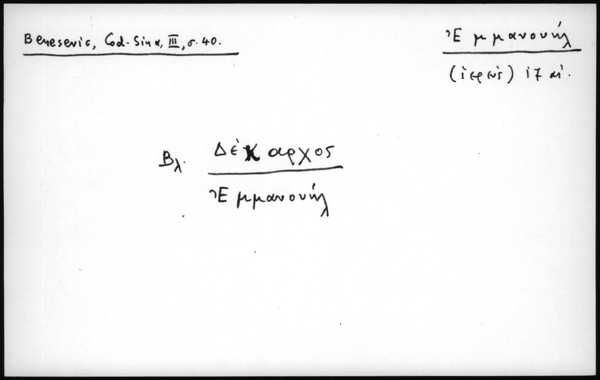 Benesevic, Cod. Sin α, III, σ. 40.
Ἐμμανουήλ
(ἱερεύς) 17 αἰ.
Βλ. Δέκαρχος
Ἐμμανουήλ